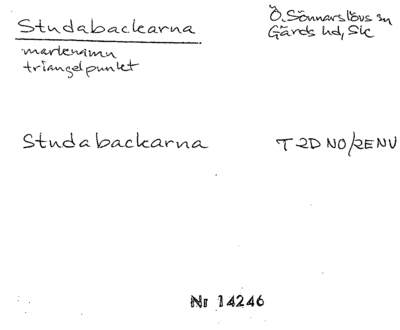 Studabackarna
Ö. Sönnarslövs sn
Gärds hd, Sk
marknamn
triangelpunkt
Studabackarna
T 2D NO/2E NV
Nr 14246